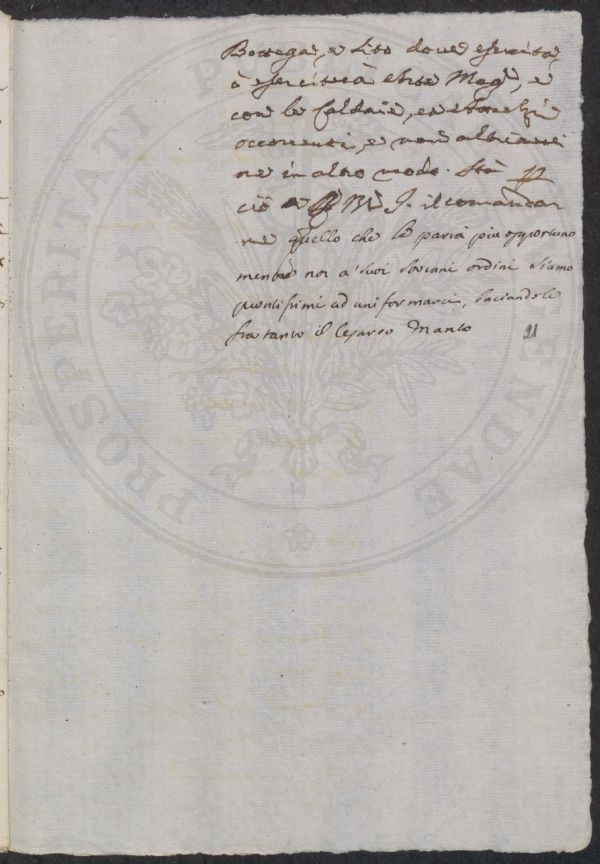 Bottega, e Sito dove esercita,
ò esercitarà detto Mag:, e
con le Caldaie, et
occorrenti, e non altrimenti
ne in altro modo. Sta
ciò à V. M. J. il comandar
ne quello che le parrà più opportuno
mentre noi a' suoi Sovrani ordini siamo
prontissimi ad uniformarci, baciandole
fratanto il Cesareo Manto 21
PROSPERITATI PUBLICAE AUGENDAE